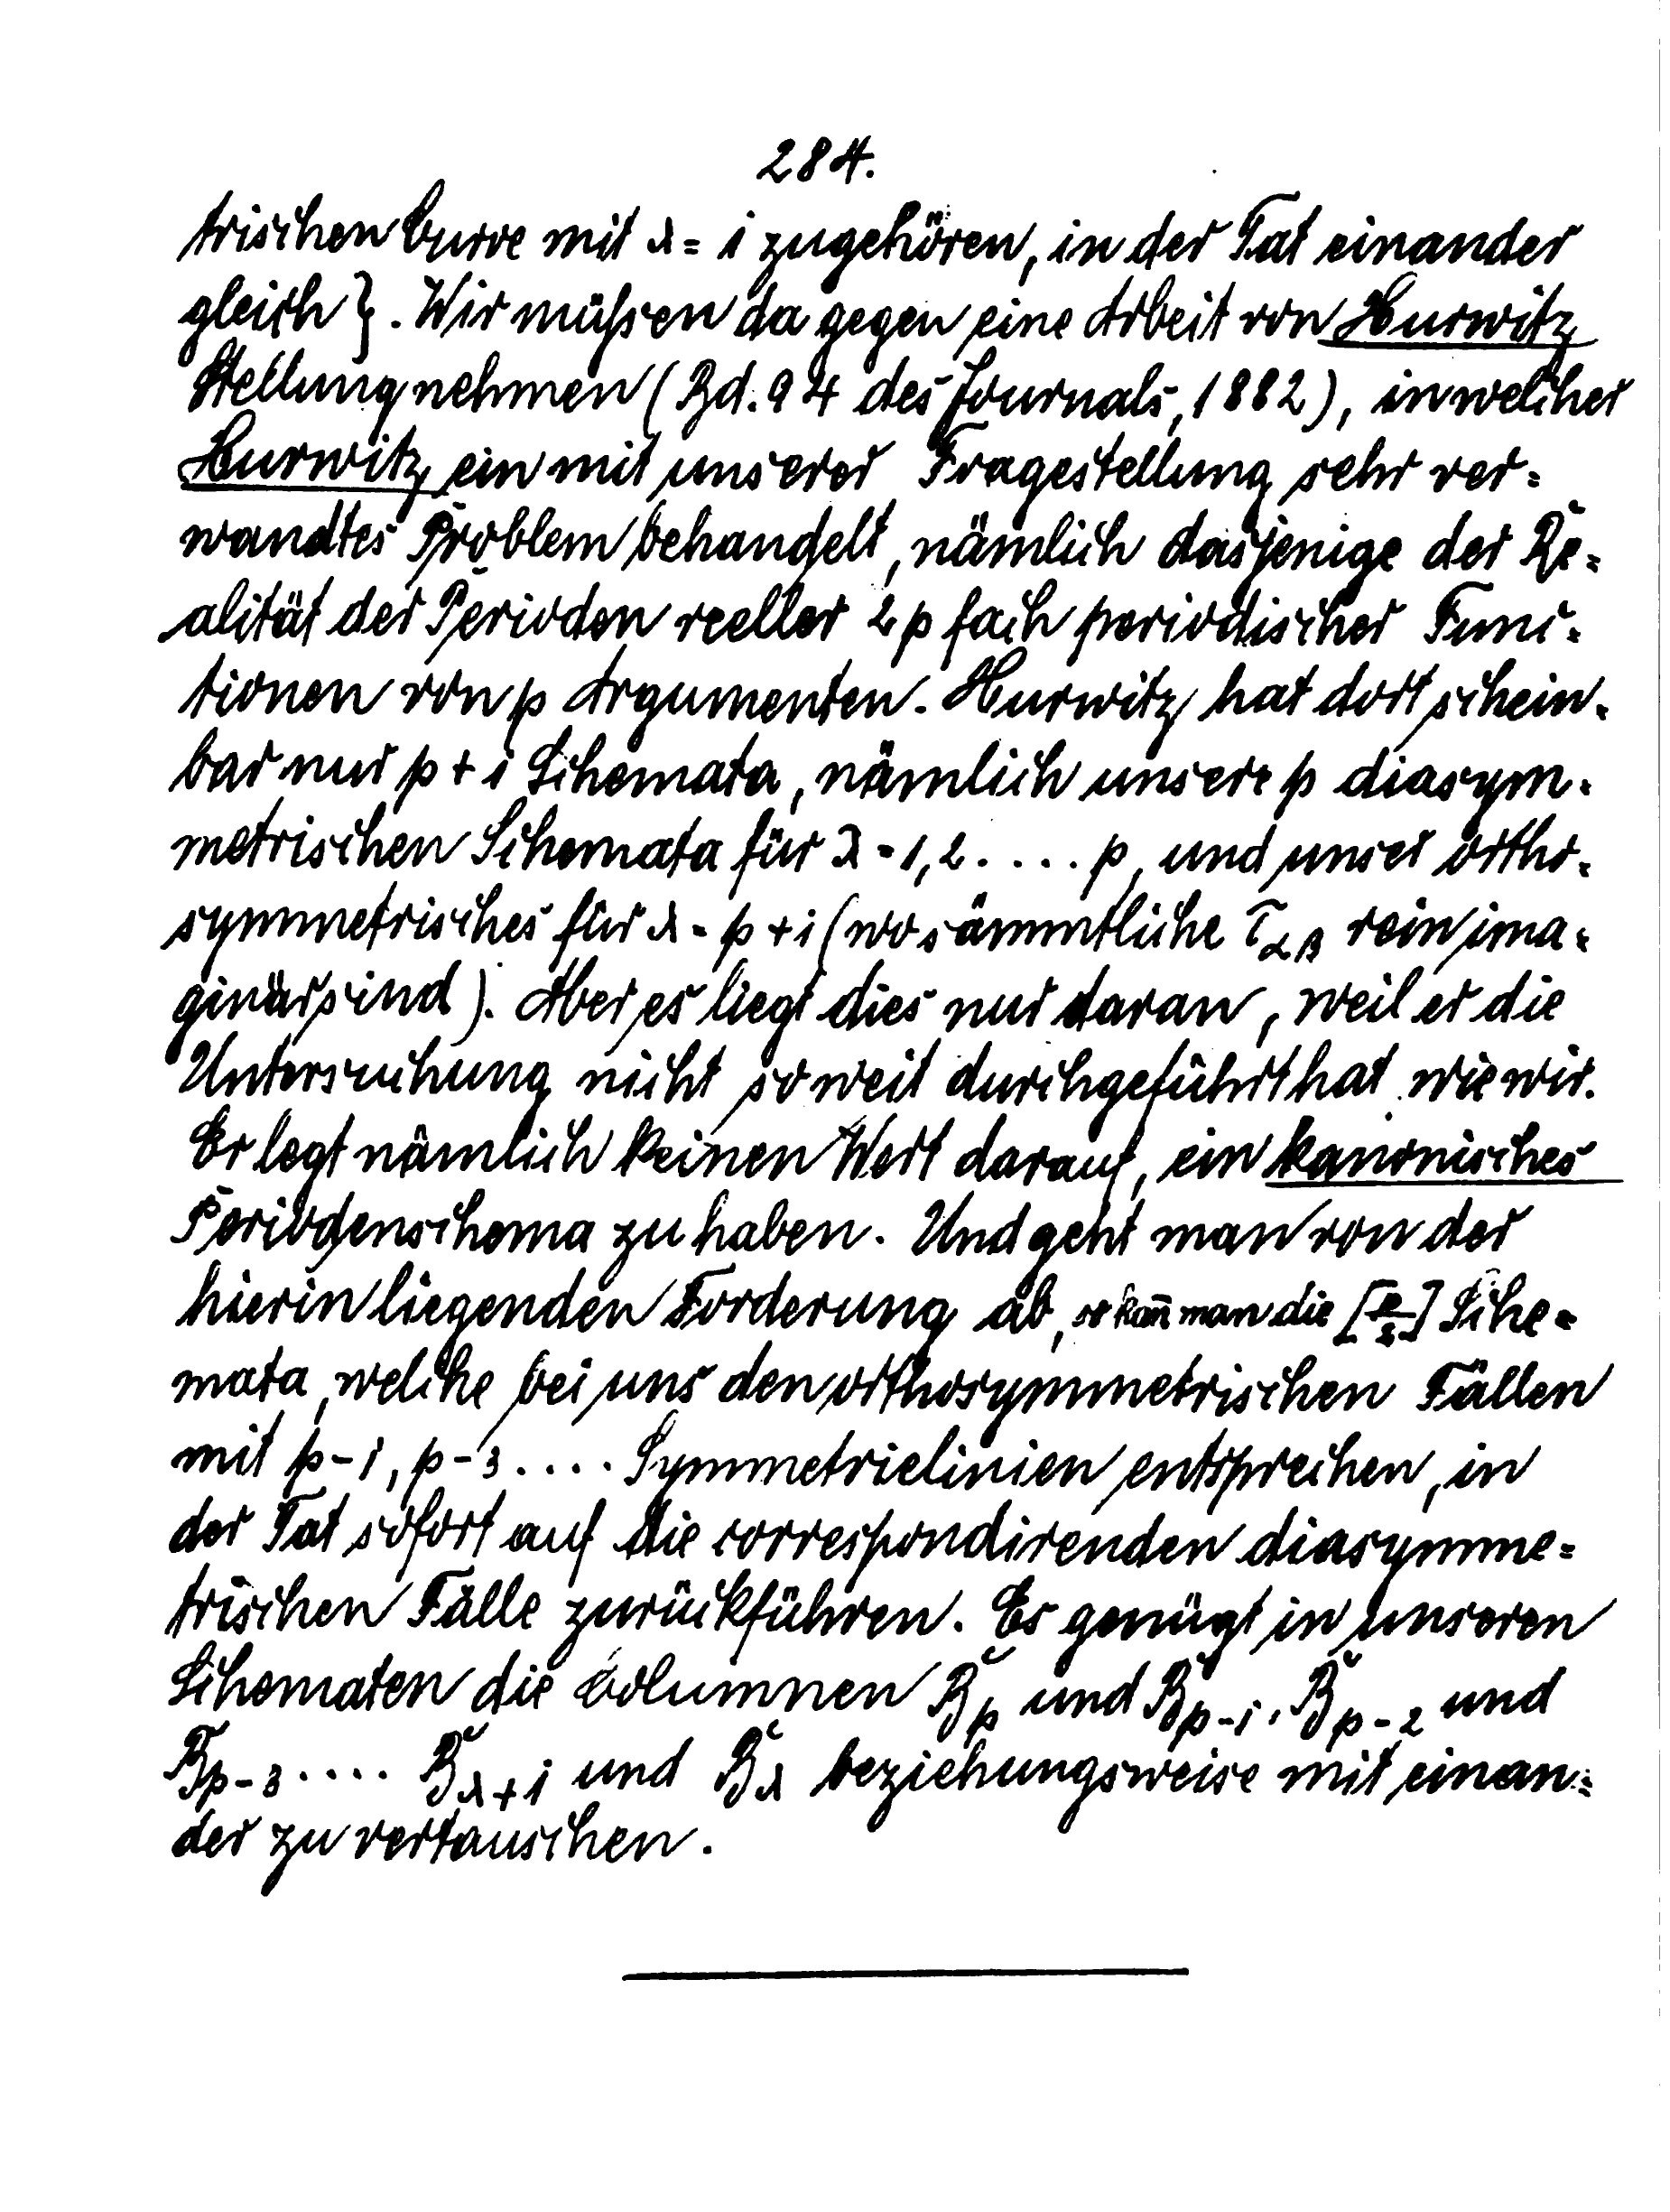 284.
trischen Curve mit λ = 1 zugehören, in der Tat einander
gleich}. Wir müßen dagegen eine Arbeit von Hurwitz
Stellung nehmen (Bd. 94 des Journals, 1882), in welcher
Hurwitz ein mit unserer Fragestellung sehr ver=
wandtes Problem behandelt, nämlich dasjenige der Re=
alität der Perioden reeller 2p fach periodischer Func=
tionen von p Argumenten. Hurwitz hat dort schein=
bar nur p + 1 Schemata, nämlich unsere p diasym=
metrischen Schemata für λ = 1, 2 . . . . p, und unser ortho=
symmetrisches für λ = p + 1 (wo sämmtliche τ_αβ rein ima=
ginär sind). Aber es liegt dies nur daran, weil er die
Untersuchung nicht so weit durchgeführt hat wie wir.
Er legt nämlich keinen Wert darauf, ein kanonisches
Periodenschema zu haben. Und geht man von der
hierin liegenden Forderung ab, so kan̄ man die [p/2] Sche=
mata, welche bei uns den orthosymmetrischen Fällen
mit p-1, p-3 . . . . Symmetrielinien entsprechen, in
der Tat sofort auf die correspondirenden diasymme=
trischen Fälle zurückführen. Es genügt in unseren
Schematen die Columnen B_p und B_p-1, B_p-2 und
B_p-3 . . . . B_λ+1 und B_λ beziehungsweise mit einan=
der zu vertauschen.